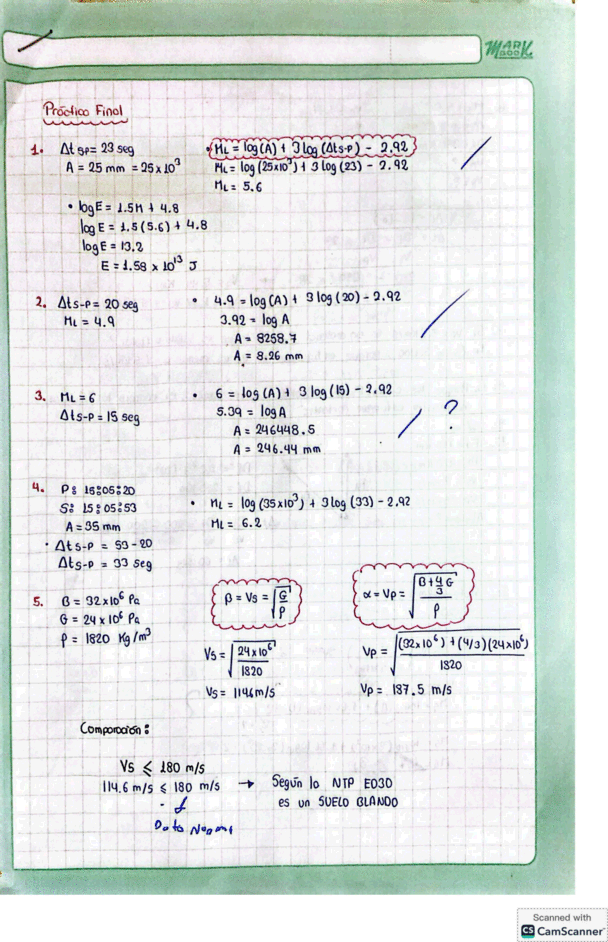 MARK BOOK
Práctico Final
1. Δt sp= 23 seg
A = 25 mm = 25x10³
• ML = log(A) + 3 log(Δts-p) - 2.92
ML = log(25x10³) + 3 log(23) - 2.92
ML = 5.6
• logE = 1.5M + 4.8
logE = 1.5(5.6) + 4.8
logE = 13.2
E = 1.58 x 10¹³ J
2. Δts-p = 20 seg
ML = 4.9
• 4.9 = log(A) + 3 log(20) - 2.92
3.92 = log A
A = 8258.7
A = 8.26 mm
3. ML = 6
Δts-p = 15 seg
• 6 = log(A) + 3 log(15) - 2.92
5.39 = logA
A = 246448.5
A = 246.44 mm
?
4. P: 15:05:20
S: 15:05:53
A = 35 mm
• Δts-p = 53-20
Δts-p = 33 seg
• ML = log(35x10³) + 3log(33) - 2.92
ML = 6.2
5. B = 32x10⁶ Pa
G = 24x10⁶ Pa
ρ = 1820 Kg/m³
β = Vs = √(G/ρ)
Vs = √(24x10⁶/1820)
Vs = 114.6m/s
α = Vp = √((B+4/3 G)/ρ)
Vp = √(((32x10⁶) + (4/3)(24x10⁶))/1820)
Vp = 187.5 m/s
Comparación:
Vs ≤ 180 m/s
114.6 m/s ≤ 180 m/s → Según la NTP E030
es un SUELO BLANDO
Dato
Scanned with
CS CamScanner